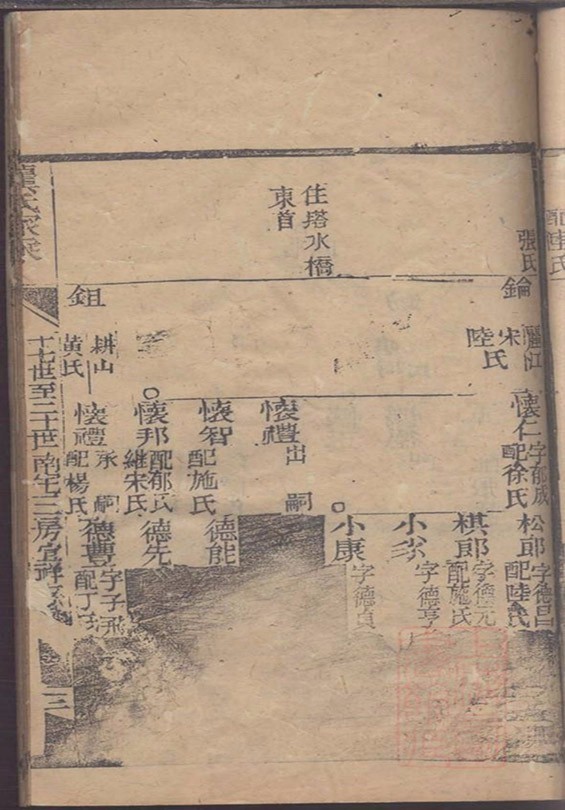 配陸氏
張氏
住塔水橋
東首
錀
麗江
宋氏
陸氏
鉏
耕山
黄氏
懷仁
字郁成
配徐氏
懷禮
出嗣
懷智
配施氏
懷邦
配郁氏
維宋氏
懷禮
承嗣
配楊氏
松郎
字德昌
配陸氏
棋郎
字德元
配施氏
字德亨
小康
字德貞
德能
德先
德豐
字子飛
龔氏家乘
十七世至二十世南宅三房宜祥系